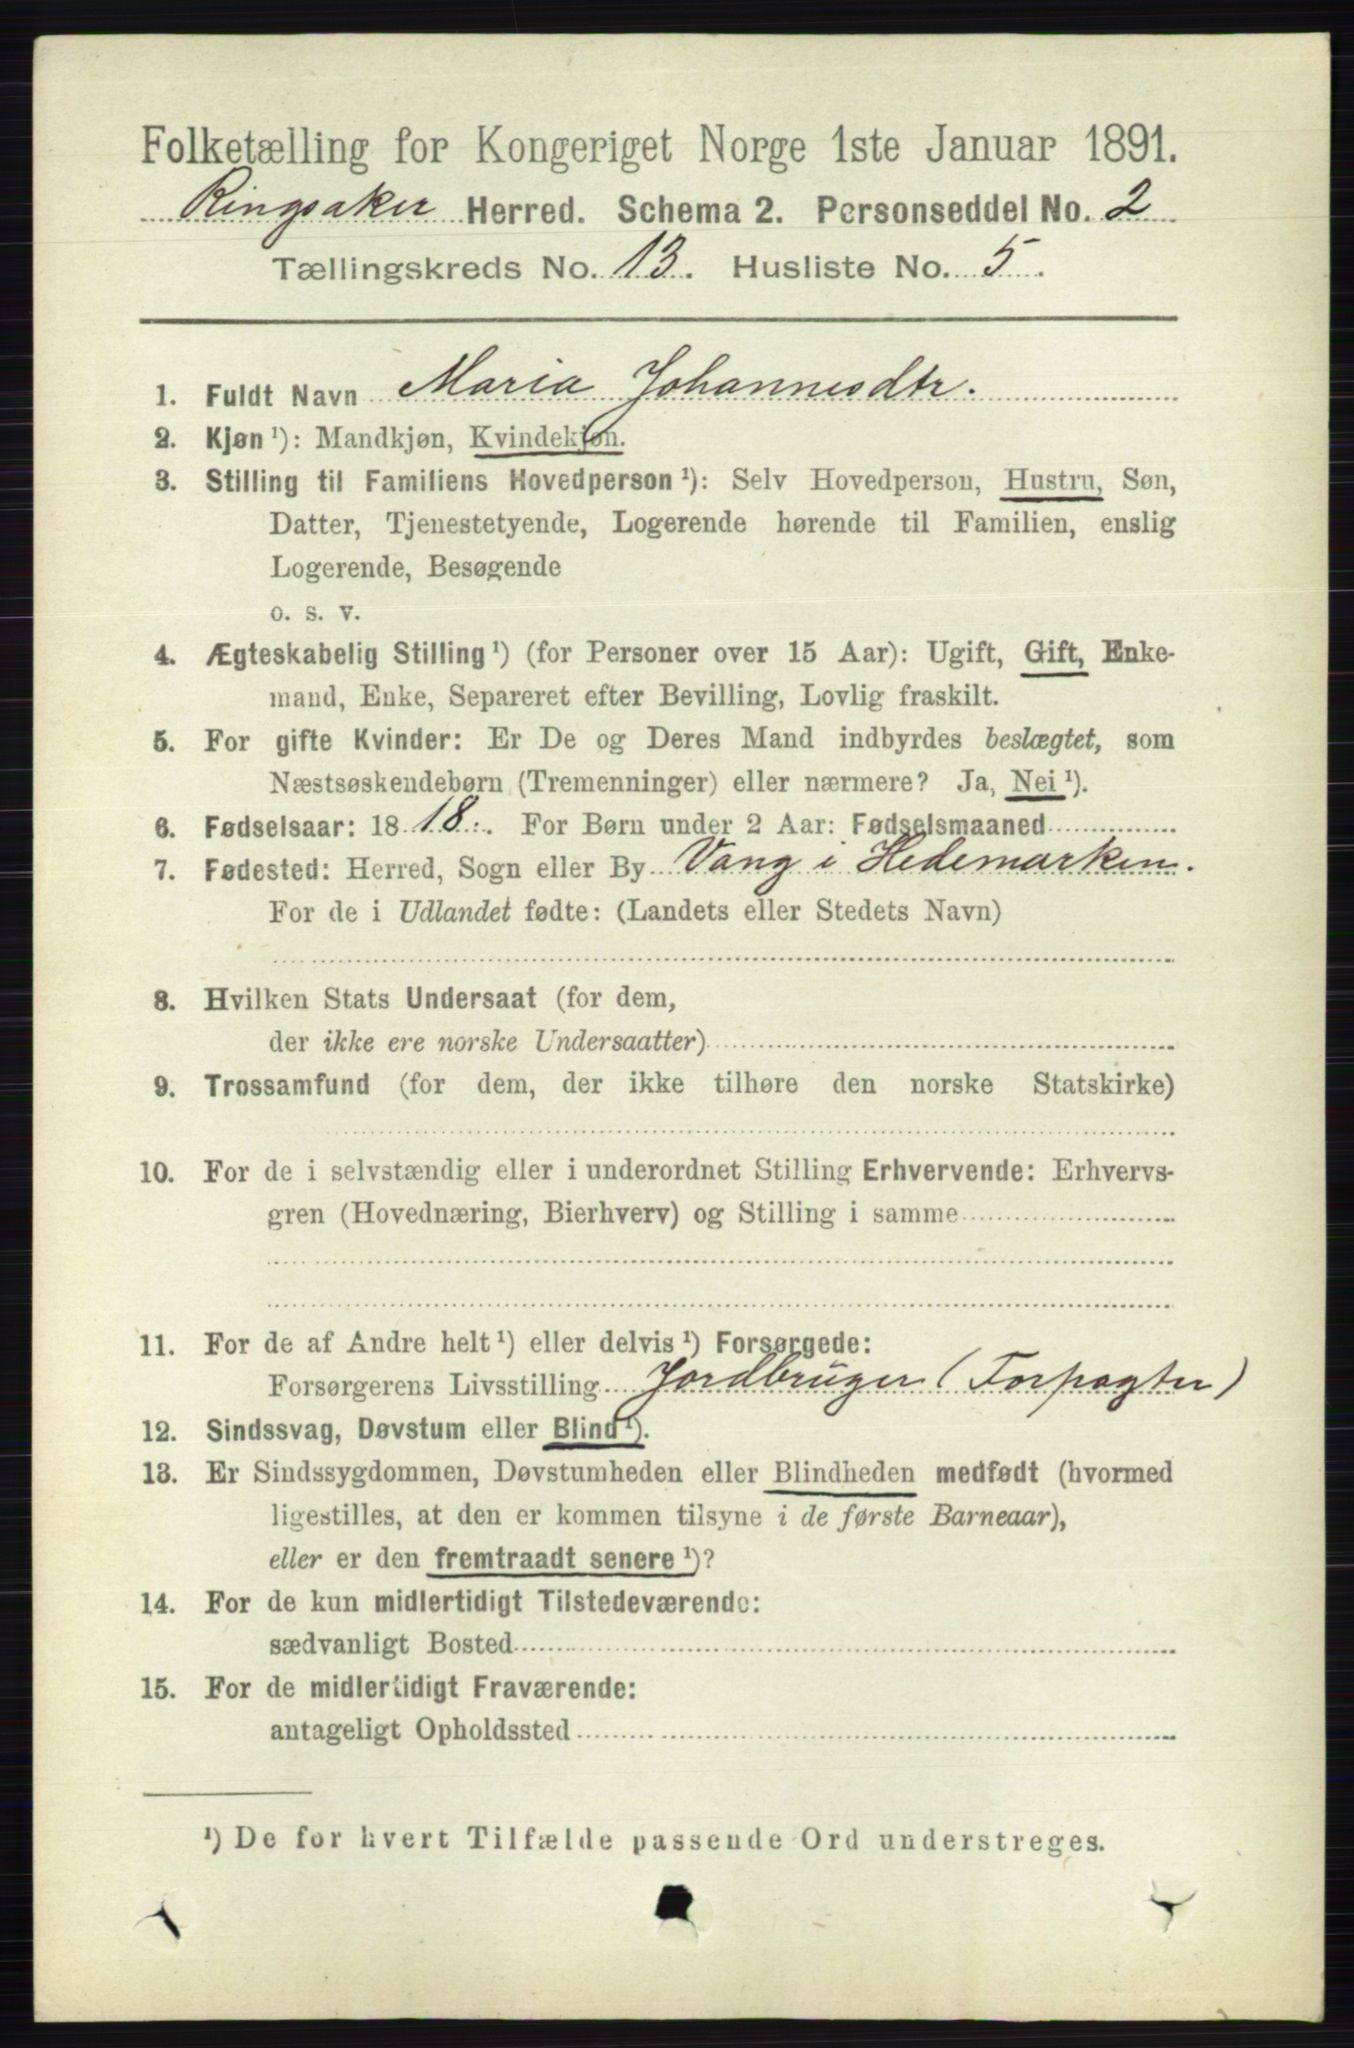 Folketælling for Kongeriget Norge 1ste Januar 1891.
Ringsaker Herred. Schema 2. Personseddel No. 2
Tællingskreds No. 13. Husliste No. 5.
1. Fuldt Navn Maria Johannesdtr.
2. Kjøn ¹): Mandkjøn, Kvindekjøn.
3. Stilling til Familiens Hovedperson ¹): Selv Hovedperson, Hustru, Søn,
Datter, Tjenestetyende, Logerende hørende til Familien, enslig
Logerende, Besøgende
o. s. v.
4. Ægteskabelig Stilling ¹) (for Personer over 15 Aar): Ugift, Gift, Enke-
mand, Enke, Separeret efter Bevilling, Lovlig fraskilt.
5. For gifte Kvinder: Er De og Deres Mand indbyrdes beslægtet, som
Næstsøskendebørn (Tremenninger) eller nærmere? Ja, Nei ¹).
6. Fødselsaar: 1818. For Børn under 2 Aar: Fødselsmaaned
7. Fødested: Herred, Sogn eller By Vang i Hedemarken.
For de i Udlandet fødte: (Landets eller Stedets Navn)
8. Hvilken Stats Undersaat (for dem,
der ikke ere norske Undersaatter)
9. Trossamfund (for dem, der ikke tilhøre den norske Statskirke)
10. For de i selvstændig eller i underordnet Stilling Erhvervende: Erhvervs-
gren (Hovednæring, Bierhverv) og Stilling i samme
11. For de af Andre helt ¹) eller delvis ¹) Forsørgede:
Forsørgerens Livsstilling Jordbruger (Forpagter)
12. Sindssvag, Døvstum eller Blind ¹).
13. Er Sindssygdommen, Døvstumheden eller Blindheden medfødt (hvormed
ligestilles, at den er kommen tilsyne i de første Barneaar),
eller er den fremtraadt senere ¹)?
14. For de kun midlertidigt Tilstedeværende:
sædvanligt Bosted
15. For de midlertidigt Fraværende:
antageligt Opholdssted
¹) De for hvert Tilfælde passende Ord understreges.